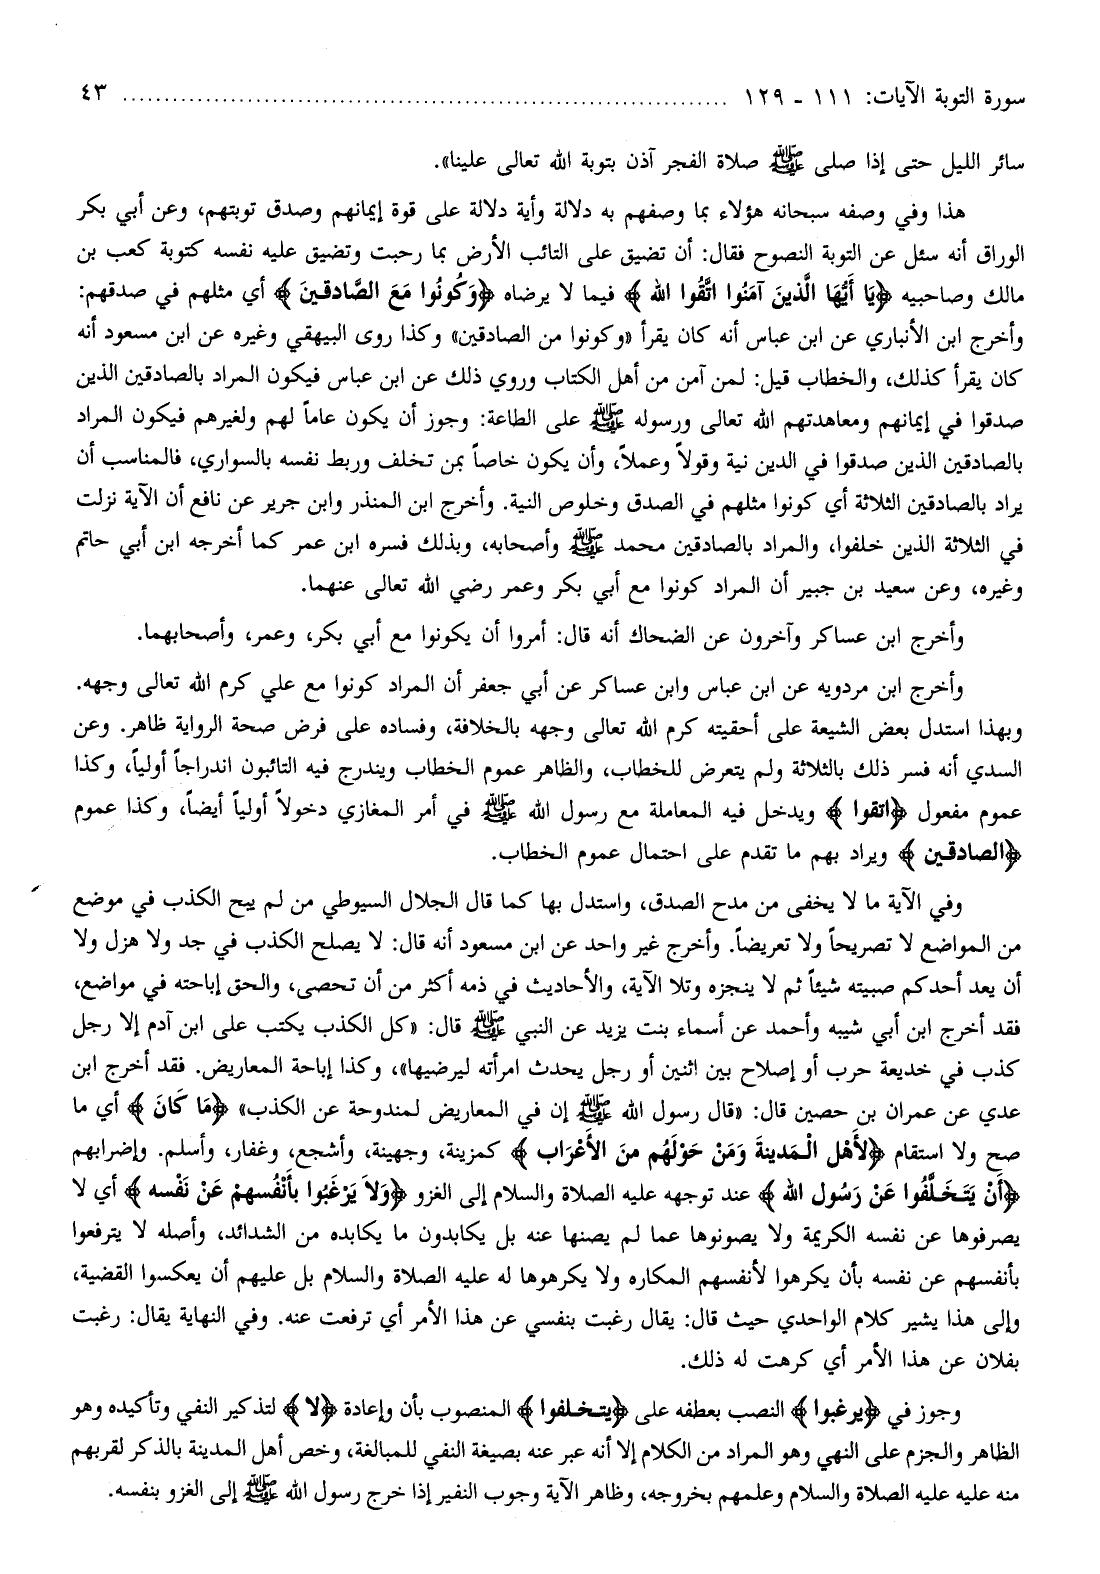 سورة التوبة الآيات: ١١١ - ١٢٩ ................................................................ ٤٣
سائر الليل حتى إذا صلى ﷺ صلاة الفجر آذن بتوبة الله تعالى علينا».
هذا وفي وصفه سبحانه هؤلاء بما وصفهم به دلالة وأية دلالة على قوة إيمانهم وصدق توبتهم، وعن أبي بكر
الوراق أنه سئل عن التوبة النصوح فقال: أن تضيق على التائب الأرض بما رحبت وتضيق عليه نفسه كتوبة كعب بن
مالك وصاحبيه ﴿يَا أَيُّهَا الَّذينَ آمَنُوا اتَّقُوا الله﴾ فيما لا يرضاه ﴿وَكُونُوا مَعَ الصَّادقينَ﴾ أي مثلهم في صدقهم:
وأخرج ابن الأنباري عن ابن عباس أنه كان يقرأ «وكونوا من الصادقين» وكذا روى البيهقي وغيره عن ابن مسعود أنه
كان يقرأ كذلك، والخطاب قيل: لمن آمن من أهل الكتاب وروي ذلك عن ابن عباس فيكون المراد بالصادقين الذين
صدقوا في إيمانهم ومعاهدتهم الله تعالى ورسوله ﷺ على الطاعة: وجوز أن يكون عاماً لهم ولغيرهم فيكون المراد
بالصادقين الذين صدقوا في الدين نية وقولاً وعملاً، وأن يكون خاصاً بمن تخلف وربط نفسه بالسواري، فالمناسب أن
يراد بالصادقين الثلاثة أي كونوا مثلهم في الصدق وخلوص النية. وأخرج ابن المنذر وابن جرير عن نافع أن الآية نزلت
في الثلاثة الذين خلفوا، والمراد بالصادقين محمد ﷺ وأصحابه، وبذلك فسره ابن عمر كما أخرجه ابن أبي حاتم
وغيره، وعن سعيد بن جبير أن المراد كونوا مع أبي بكر وعمر رضي الله تعالى عنهما.
وأخرج ابن عساكر وآخرون عن الضحاك أنه قال: أمروا أن يكونوا مع أبي بكر، وعمر، وأصحابهما.
وأخرج ابن مردويه عن ابن عباس وابن عساكر عن أبي جعفر أن المراد كونوا مع علي كرم الله تعالى وجهه.
وبهذا استدل بعض الشيعة على أحقيته كرم الله تعالى وجهه بالخلافة، وفساده على فرض صحة الرواية ظاهر. وعن
السدي أنه فسر ذلك بالثلاثة ولم يتعرض للخطاب، والظاهر عموم الخطاب ويندرج فيه التائبون اندراجاً أولياً، وكذا
عموم مفعول ﴿اتقوا﴾ ويدخل فيه المعاملة مع رسول الله ﷺ في أمر المغازي دخولاً أولياً أيضاً، وكذا عموم
﴿الصادقين﴾ ويراد بهم ما تقدم على احتمال عموم الخطاب.
وفي الآية ما لا يخفى من مدح الصدق، واستدل بها كما قال الجلال السيوطي من لم يبح الكذب في موضع
من المواضع لا تصريحاً ولا تعريضاً. وأخرج غير واحد عن ابن مسعود أنه قال: لا يصلح الكذب في جد ولا هزل ولا
أن يعد أحدكم صبيته شيئاً ثم لا ينجزه وتلا الآية، والأحاديث في ذمه أكثر من أن تحصى، والحق إباحته في مواضع،
فقد أخرج ابن أبي شيبه وأحمد عن أسماء بنت يزيد عن النبي ﷺ قال: «كل الكذب يكتب على ابن آدم إلا رجل
كذب في خديعة حرب أو إصلاح بين اثنين أو رجل يحدث امرأته ليرضيها»، وكذا إباحة المعاريض. فقد أخرج ابن
عدي عن عمران بن حصين قال: «قال رسول الله ﷺ إن في المعاريض لمندوحة عن الكذب» ﴿مَا كَانَ﴾ أي ما
صح ولا استقام ﴿لأَهْل الْمَدينَة وَمَنْ حَوْلَهُم منَ الأَعْرَاب﴾ كمزينة، وجهينة، وأشجع، وغفار، وأسلم. وإضرابهم
﴿أَنْ يَتَخَلَّفُوا عَنْ رَسُول الله﴾ عند توجهه عليه الصلاة والسلام إلى الغزو ﴿وَلاَ يَرْغَبُوا بأَنْفُسهمْ عَنْ نَفْسه﴾ أي لا
يصرفوها عن نفسه الكريمة ولا يصونوها عما لم يصنها عنه بل يكابدون ما يكابده من الشدائد، وأصله لا يترفعوا
بأنفسهم عن نفسه بأن يكرهوا لأنفسهم المكاره ولا يكرهوها له عليه الصلاة والسلام بل عليهم أن يعكسوا القضية،
وإلى هذا يشير كلام الواحدي حيث قال: يقال رغبت بنفسي عن هذا الأمر أي ترفعت عنه. وفي النهاية يقال: رغبت
بفلان عن هذا الأمر أي كرهت له ذلك.
وجوز في ﴿يرغبوا﴾ النصب بعطفه على ﴿يتخلفوا﴾ المنصوب بأن وإعادة ﴿لا﴾ لتذكير النفي وتأكيده وهو
الظاهر والجزم على النهي وهو المراد من الكلام إلا أنه عبر عنه بصيغة النفي للمبالغة، وخص أهل المدينة بالذكر لقربهم
منه عليه عليه الصلاة والسلام وعلمهم بخروجه، وظاهر الآية وجوب النفير إذا خرج رسول الله ﷺ إلى الغزو بنفسه.